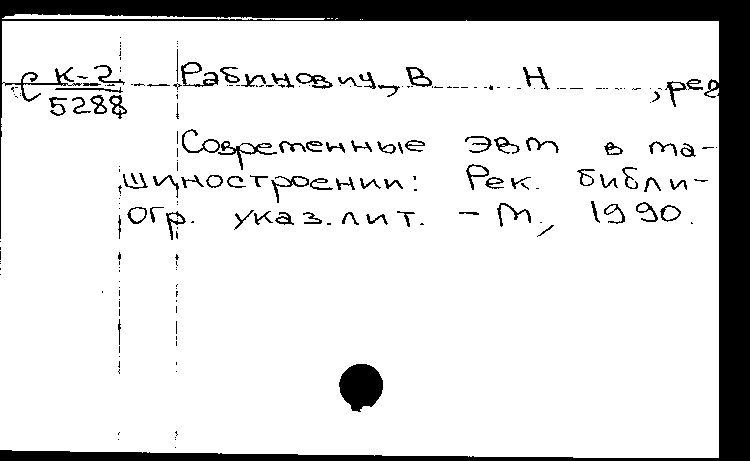 С К-2 Рабинович, В. Н., ред
5288
Современные ЭВМ в ма-
шиностроении: Рек. библи-
огр. указ. лит. - М., 1990.